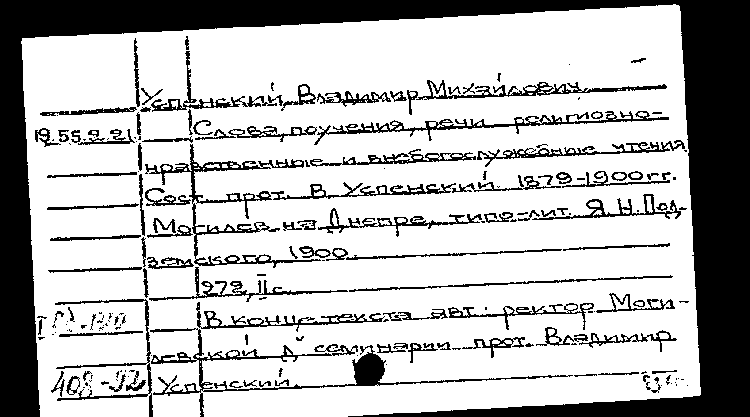 Успенский, Владимир Михайлович.
19.55.9.21 Слова, поучения, речи религиозно-
нравственные и внебогослужебные чтения
Сост. прот. В. Успенский. 1879-1900гг.
Могилев на Днепре, типо-лит. Я.Н. Под-
земского, 1900.
272, II с.
В конце текста авт: ректор Моги-
левской д. семинарии прот. Владимир
408-92 Успенский.